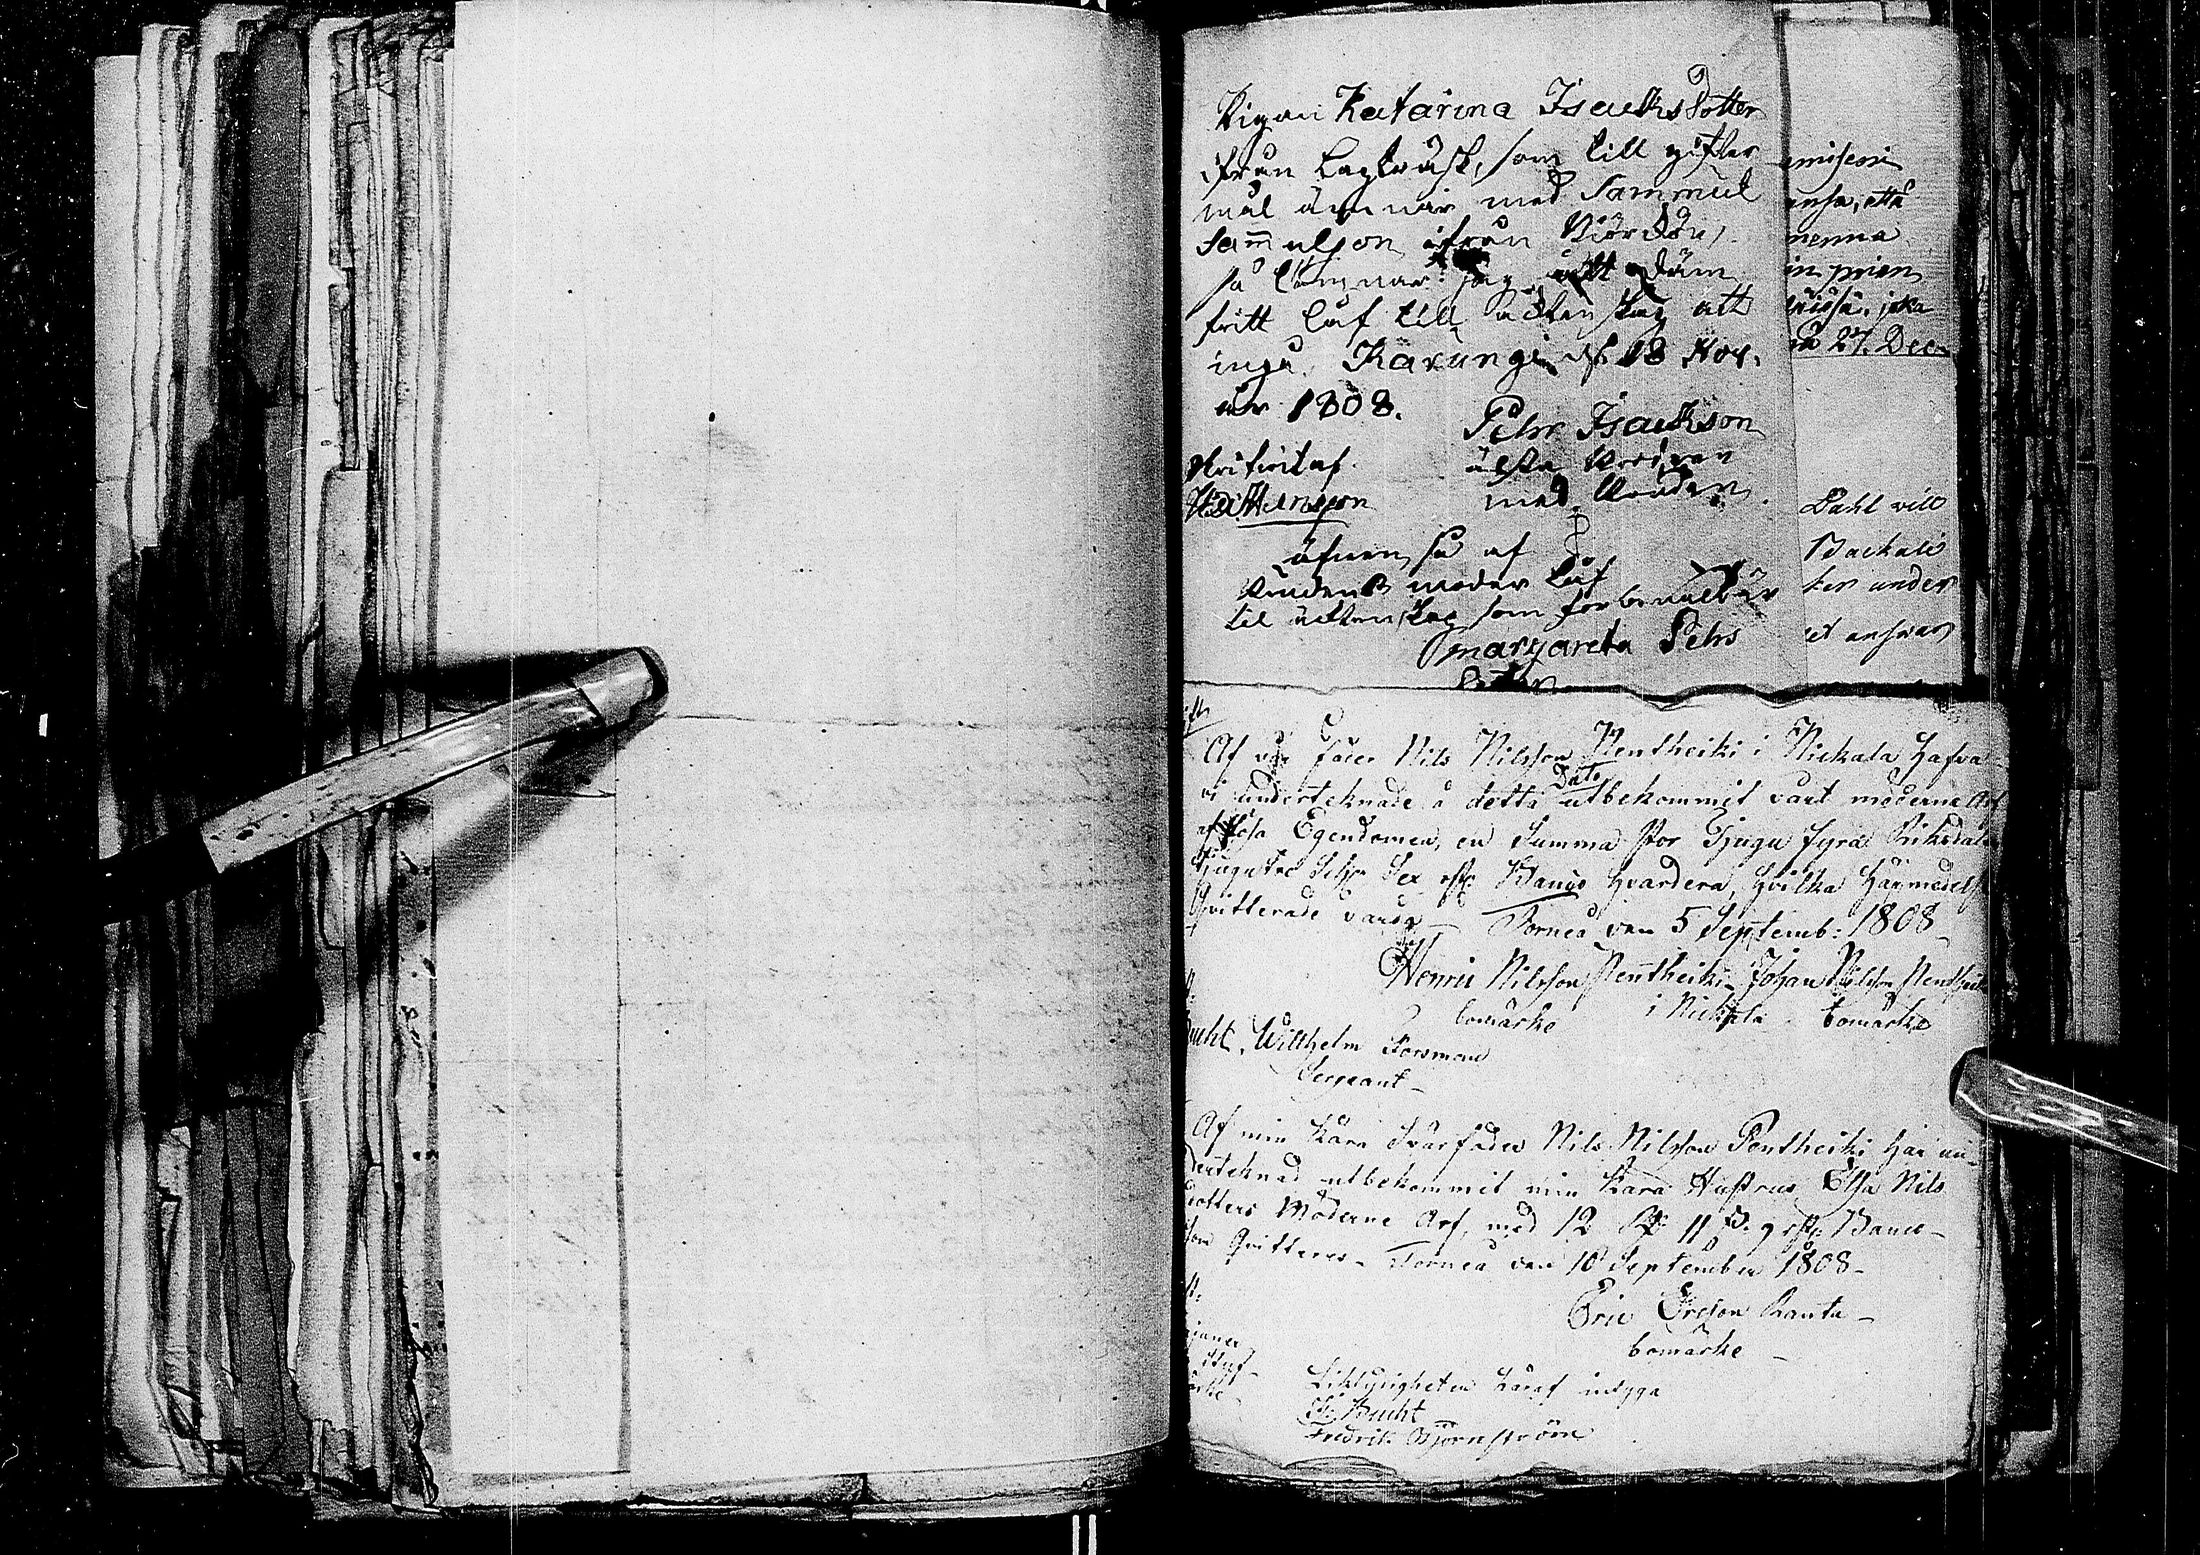 Pigan Katarina Isacks dotter
från Lagträsk, som till gifter
mål ämnar med Sammul
Sammulson ifrån Kiördön,
så lämnar jag ått däm
fritt låf till äcktenskap att
ingå. Karungi d. 18 Nov.
år 1808.
Pehr Isackson
älsta broderen
med Anderen
skrifvit af
äfven så af
brudens moder låf
til äcktenskap som förbemält är
margareta Pehrs
dotter
amiseni
ansa, että
nenna
in prien
pääsä, joka
27. Dec.
Dahl vill
Backali
ker under
et answar
Af vår fader Nils Nilsson Pentheiki i Nickala hafva
vi underteknade å detta Dato utbekommit vårt möderne Arf
af lösa Egendomen, en Summa stor Tjugu fyra Riksdaler
tjugutre Sch. Sex rst. Banco hvardera, hvilka härmedelst
Qvitterade varda Torneå den 5 Septemb: 1808
Henric Nilsson Pentheiki Johan Nilsson Pentheiki
bomärke i Nickala bomärke
Bucht Willhelm Forsman
Sergeant
Af min kära Svärfader Nils Nilsson Pentheiki har un-
derteknad utbekommit min kära Hustrus Elsa Nils
dotters Möderne Arf, med 12 Rd. 11 s. 9 rst. Banco
som Qvitteres Torneå den 10 September 1808
Eric Ersson Ranta
bomärke
Riktigheten häraf intyga
Bucht
Fredrik Björnström